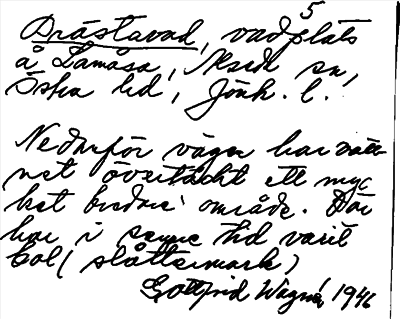 5
Prästavad, vadplats
å Lamåsa, Norra sn,
Östra hd, Jönk. l.
Nedanför vägen har vatt-
net översteckt ett myc
ket bredare område. Där
har i senare tid varit
bol (slåttermark)
Gottfrid Wagnér, 1946